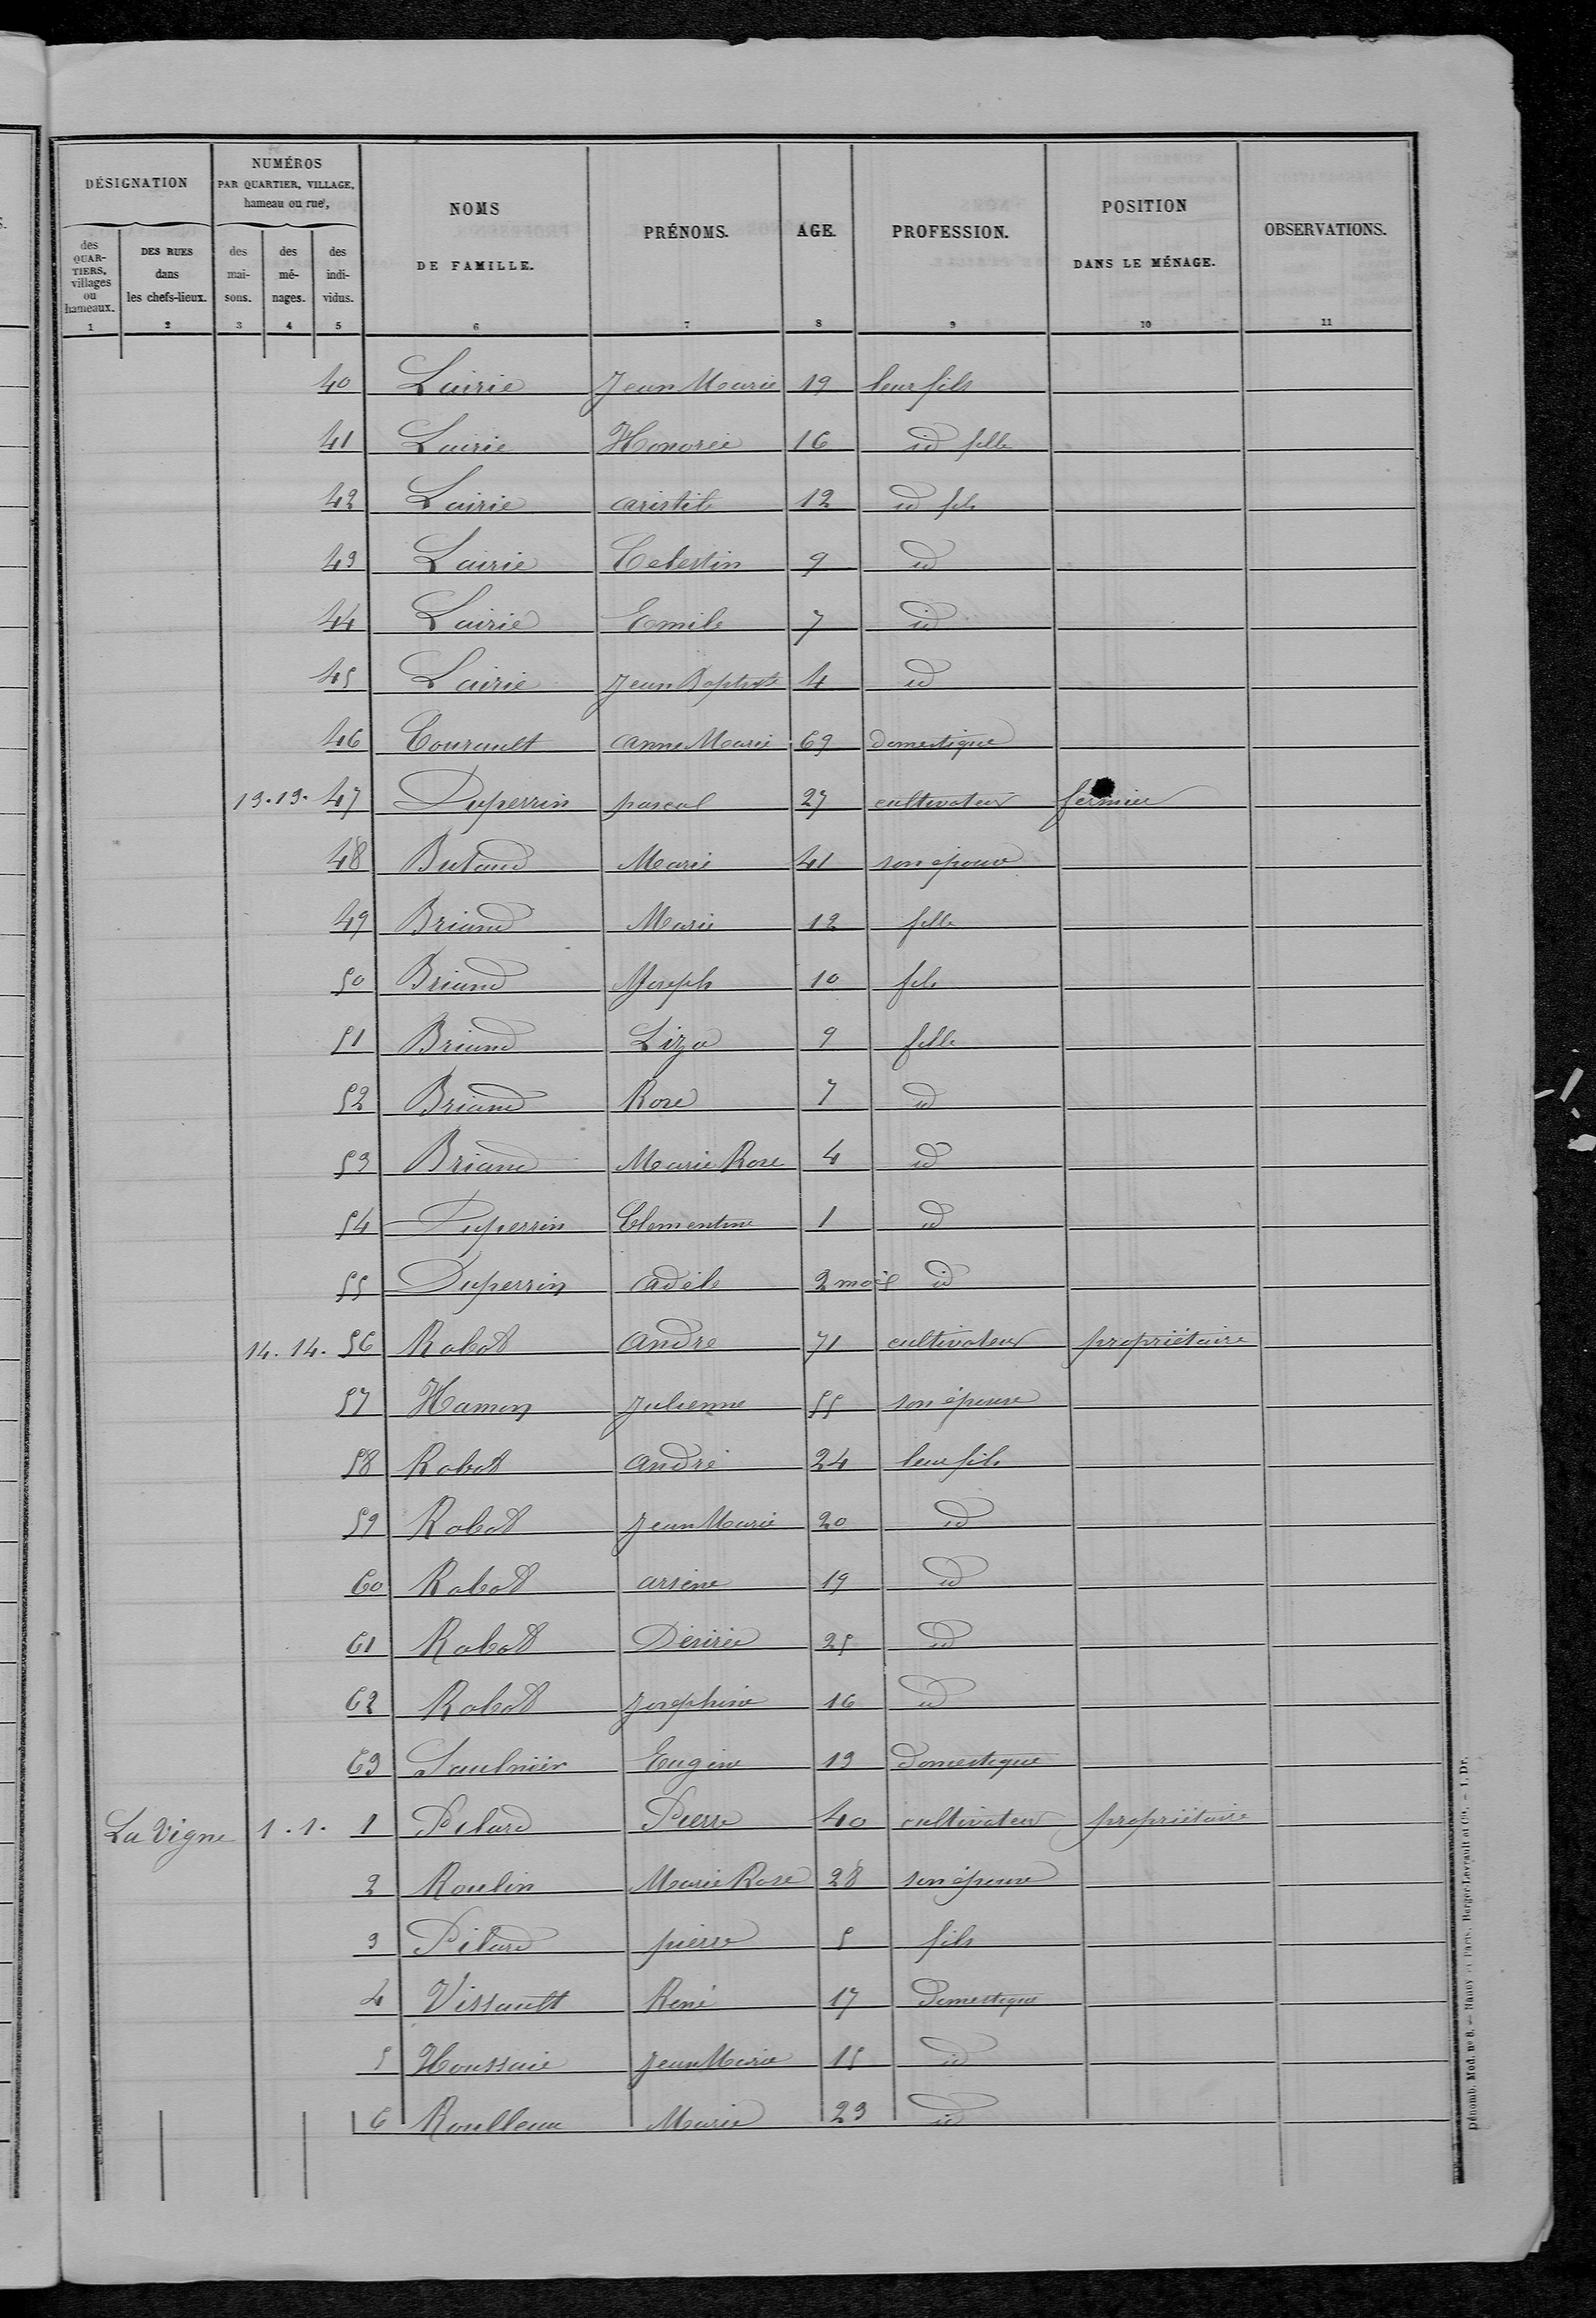 DÉSIGNATION
NUMÉROS
PAR QUARTIER, VILLAGE,
hameau ou rue,
NOMS
DE FAMILLE.
PRÉNOMS.
AGE.
PROFESSION.
POSITION
DANS LE MÉNAGE.
OBSERVATIONS.
des
QUAR-
TIERS,
villages
ou
hameaux.
DES RUES
dans
les chefs-lieux.
des
mai-
sons.
des
mé-
nages.
des
indi-
vidus.
1 2 3 4 5 6 7 8 9 10 11
40 Lairie Jean Marie 19 leur fils
41 Lairie Honorée 16 id fille
42 Lairie aristile 12 id fils
43 Lairie Celestin 9 id
44 Lairie Emile 7 id
45 Lairie Jean Baptiste 4 id
46 Courault Anne Marie 69 domestique
13. 13. 47 Duperrin pascal 27 cultivateur fermier
48 Butaud Marie 41 son épouse
49 Briand Marie 12 fille
50 Briand Joseph 10 fils
51 Briand Liza 9 fille
52 Briand Rose 7 id
53 Briand Marie Rose 4 id
54 Duperrin Clementine 1 id
55 Duperrin Adèle 2 mois id
14. 14. 56 Robot André 71 cultivateur propriétaire
57 Hamon Julienne 55 son épouse
58 Robot André 24 leur fils
59 Robot Jean Marie 20 id
60 Robot arsène 19 id
61 Robot Désirée 25 id
62 Robot Josephine 16 id
63 Saulnier Eugène 13 Domestique
La Vigne 1. 1. 1 Pilard Pierre 40 cultivateur propriétaire
2 Roulin Marie Rose 28 son épouse
3 Pilard pierre 5 fils
4 Vissault René 17 Domestique
5 Houssaie Jean Marie 15 id
6 Roulleau Marie 23 id
Dénomb. Mod. nº 8. — Nancy et Paris, Berger-Levrault et Cie. — 1. Dr.